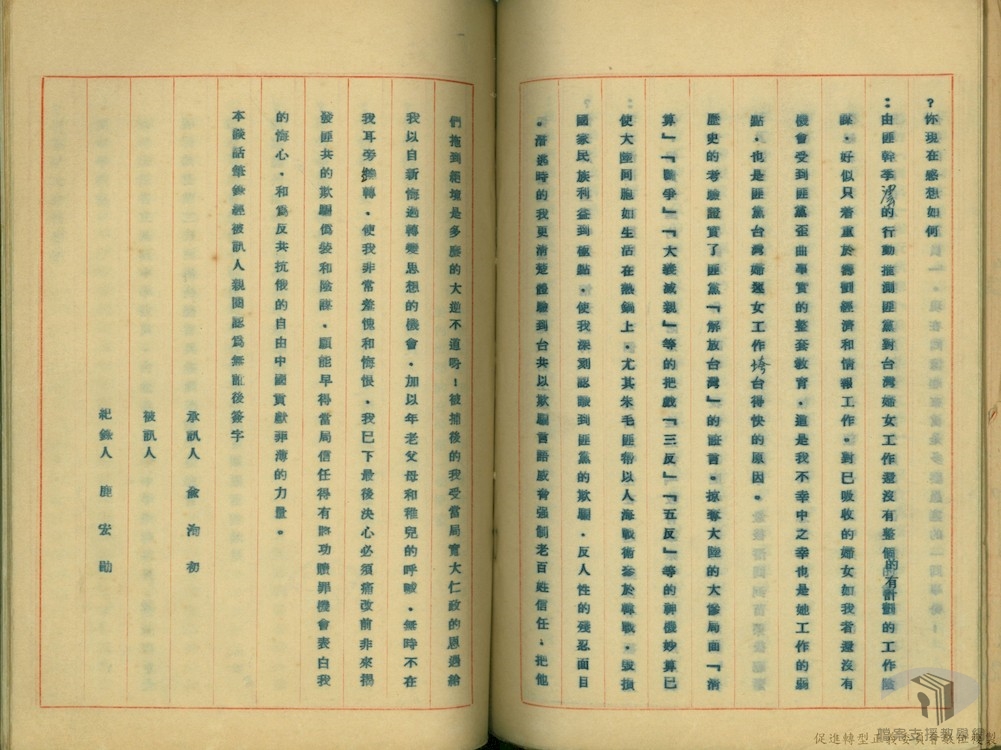 ?你現在感想如何
:由匪幹李的行動推測匪黨對台灣婦女工作還沒有整個的有計劃的工作陰
謀.好似只着重於籌劃經濟和情報工作.對已吸收的婦女如我者還沒有
機會受到匪黨歪曲事實的整套教育.這是我不幸中之幸也是她工作的弱
點.也是匪黨台灣婦運女工作垮台得快的原因。
歷史的考驗證實了匪黨「解放台灣」的謊言.掠奪大陸的大慘局面「清
算」「鬥爭」「大義滅親」等的把戲「三反」「五反」等的神機妙算已
使大陸同胞如生活在熱鍋上.尤其朱毛匪幫以人海戰術參於韓戰.毀損
國家民族利益到極點.使我深刻認識到匪黨的欺騙.反人性的殘忍面目
.落網時的我更清楚體驗到台共以欺騙言語威脅強制老百姓信任.把他
們拖到絕境是多麼的大逆不道呀!被捕後的我受當局寬大仁政的恩遇給
我以自新悔過轉變思想的機會.加以年老父母和稚兒的呼喊.無時不在
我耳旁強轉.使我非常羞愧和悔恨.我已下最後決心必須痛改前非來揭
發匪共的欺騙偽裝和陰謀.願能早得當局信任得有將功贖罪機會表白我
的悔心.和爲反共抗俄的自由中國貢獻菲薄的力量。
本談話筆錄經被訊人親閱認爲無訛後簽字
承訊人 俞 初
被訊人
紀錄人 鹿 宏 勛
檔案支援教學網
促進轉型正義委員會數位複製